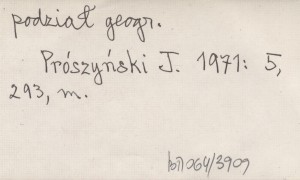 podział geogr.
Prószyński J. 1971: 5,
293, m.
064/3909